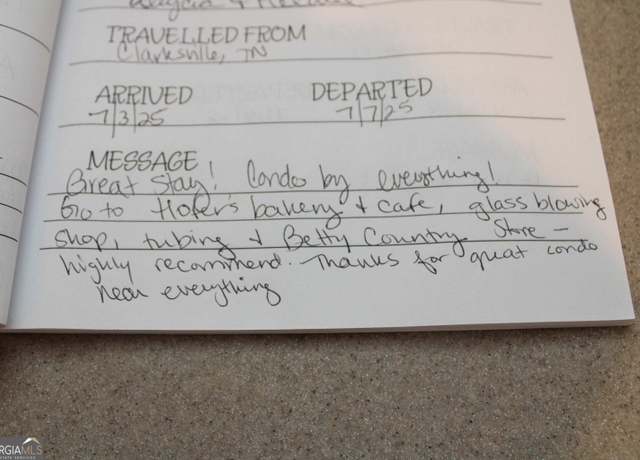 TRAVELLED FROM
Clarksville, TN
ARRIVED DEPARTED
7/3/25 7/7/25
MESSAGE
Great Stay! Condo by everything!
Go to Hofer's bakery & cafe, glass blowing
shop, tubing & Betty Country Store -
highly recommend. Thanks for great condo
near everything